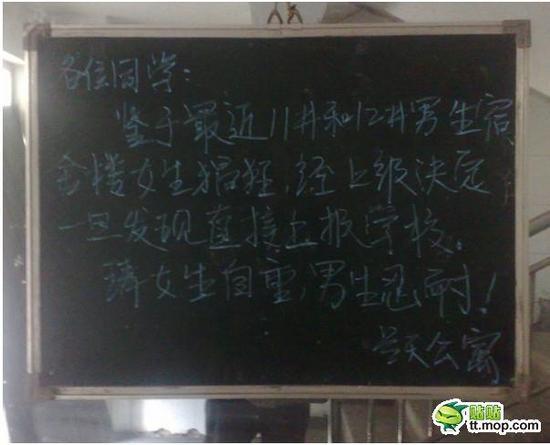 各位同学：
鉴于最近11#和12#男生宿
舍楼女生猖狂，经上级决定
一旦发现直接上报学校。
请女生自重，男生忍耐！
公寓
贴贴
tt.mop.com